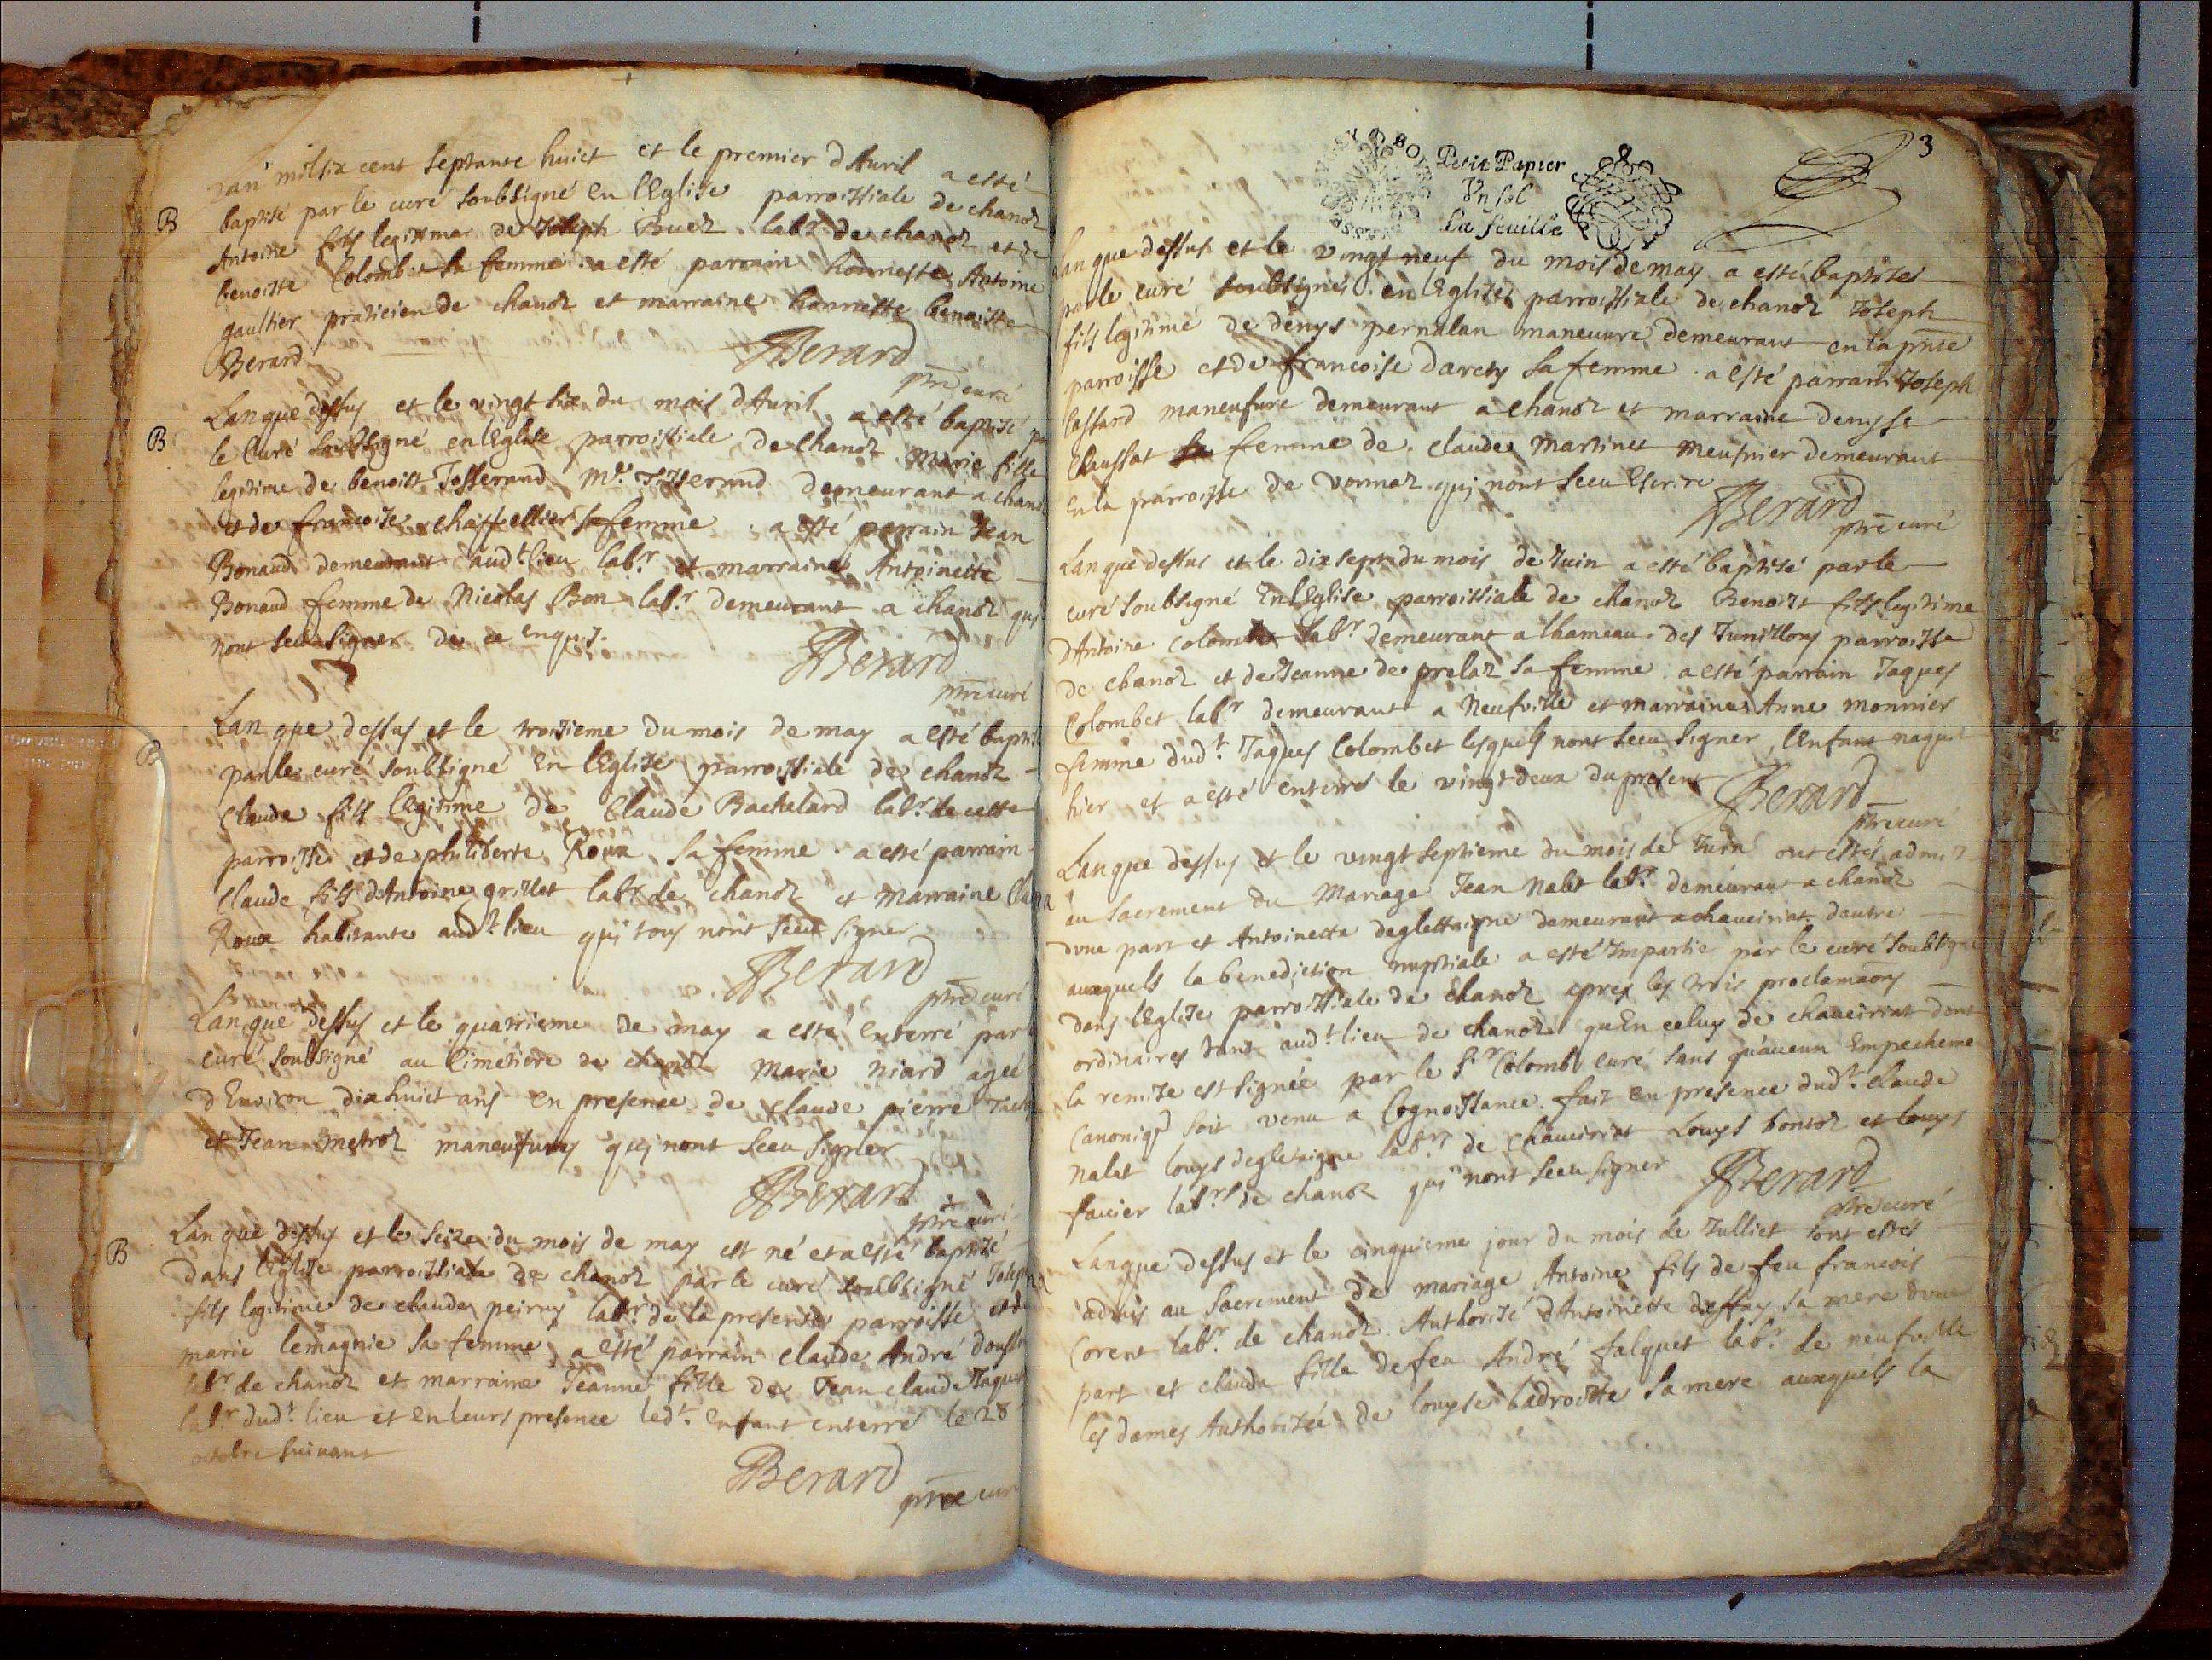 Lan mil six cent septante huict et le premier dAuril a esté
B baptisé par le curé soubsigné en lEglise parroissiale de chanoz
Antoine fils legittime de Joseph Buez labr de chanoz et de
benoiste Colombet sa femme . a esté parrain honneste Antoine
gaultier praticien de chanoz et marraine honneste benoiste
Berard
Berard
ptre curé
Lan que dessus et le vingt six du mois dAuril a esté baptisé par
B le Curé soubsigné en lEglise parroissiale de chanoz Marie fille
legitime de benoist Josserand Mre Tisserand demeurant a chanoz
et de francoise chaffellier sa femme . a esté parrain Jean
Bonaud demeurant audt lieu labr et marraine Antoinette
Bonaud femme de Nicolas Bon labr demeurant a chanoz qui
nont sceu signer de ce enquis.
Berard
ptre curé
Lan que dessus et le troisieme du mois de may a esté baptisé
B par le curé soubsigné en lEglise parroissiale de chanoz
Claude fils legitime de Claude Bachelard labr de cette
parroisse et de philiberte Roux sa femme . a esté parrain
Claude fils dAntoine grillet labr de chanoz et marraine Clauda
Roux habitante audt lieu qui tous nont sceu signer
Berard
ptre curé
Lan que dessus et le quatrieme de may a esté enterré par le
curé soubsigné au Cimetiere de chanoz Marie niard agée
dEnviron dix huict ans en presence de Claude pierre
et Jean metroz maneufures qui nont sceu signer
Berard
ptre curé
Lan que dessus et le seize du mois de may est né et a esté baptisé
B dans lEglise parroissiale de chanoz par le curé soubsigné Joseph
fils legitime de claude peiruy labr de la presente parroisse et de
marie lemagnie sa femme , a esté parrain claude André
labr de chanoz et marraine Jeanne fille de Jean claude Jaquet
labr dudt lieu et en leurs presence ledt enfant enterré le 28
octobre suivant
Berard
ptre curé
3
Petit Papier
Vn sol
La feuille
Lan que dessus et le vingt neuf du mois de may a esté baptisé
par le curé soubsigné en lEglise parroissiale de chanoz Joseph
fils legitime de denys pernalan maneuvre demeurant en la pnte
parroisse et de francoise darcy sa femme . a esté parrain Joseph
Cassard maneufure demeurant a chanoz et marraine denyse
Chaussat femme de Claude Martinet meusnier demeurant
en la parroisse de Vonnaz qui nont sceu escrire
Berard
ptre curé
Lan que dessus et le dix sept du mois de Juin a esté baptisé par le
curé soubsigné en lEglise parroissiale de chanoz Benoist fils legitime
dAntoine Colombet labr demeurant a lhameau des Junillons parroisse
de chanoz et de Jeanne de prelaz sa femme . a esté parrain Jaques
Colombet labr demeurant a Neufville et marraine Anne monnier
femme dudt Jaques Colombet lesquels nont sceu signer , lenfant naquit
hier et a esté enterré le vingt deux du present
Berard
ptre curé
Lan que dessus et le vingt septieme du mois de Juin ont estés admis
au sacrement du Mariage Jean Nalet labr demeurant a chanoz
dvne part et Antoinette deglettaigne demeurant a chaueiriat dautre
auxquels la benediction nuptiale a esté impartie par le curé soubsigné
dans lEglise parroissiale de chanoz apres les trois proclamaons
ordinaires tant audt lieu de chanoz quEn celuy de chaueiriat dont
la remise est signée par le Sr Colomb curé sans quaucun Empecheme
Canoniq soit venu a Cognoissance . fait en presence dudt claude
Nalet louys degletaigne labrs de chaueiriat Louys bontoz et louys
fauier labrs de chanoz qui nont sceu signer
Berard
ptre curé
Lan que dessus et le cinquieme jour du mois de Julliet sont estés
admis au sacrement de mariage Antoine fils de feu francois
Corent labr de chanoz Authorisé dAntoinette deffay sa mere dvne
part et clauda fille de feu André falquet labr de neufville
les dames Authorisée de louyse ladroitte sa mere auxquels la